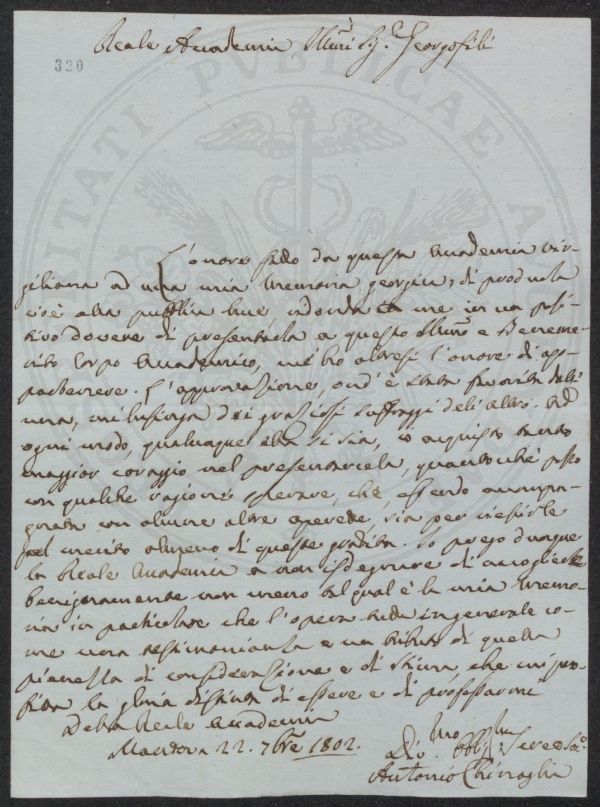 Reale Accademia Illmi Sig.i Georgofili
320
L'onore fatto da questa Accademia Vir-
giliana ad una mia Memoria georgica, di produrla
cioè alla pubblica luce induce in me un posi-
tivo dovere di presentarla a questo Illmo e Beneme-
rito Corpo Accademico, cui ho altresì l'onore di ap-
partenere. L'approvazione, ond'è stata favorita dall'
una, mi lusinga dei graziosi suffragj dell'altro. Ad
ogni modo, qualunque ella si sia, io acquisto tanto
maggior coraggio nel presentarcela, quantochè posso
con qualche ragione sperare, che, essendo accompa-
gnata con alcune altre operette, sia per riescirle
pel merito almeno di queste gradita. Io prego dunque
la Reale Accademia a non isdegnare di accogliere
benignamente non meno tal qual è la mia Memo-
ria in particolare che l'opera tutta in generale co-
me una testimonianza e un tributo di quella
pienezza di considerazione e di stima, che mi pro-
la gloria distinta di essere e di professarmi
Della Reale Accademia
Mantova 22. 7bre 1802.
Div.mo Obbl.mo Serv.e
Antonio
SSERITATI PVBLICAE AVG